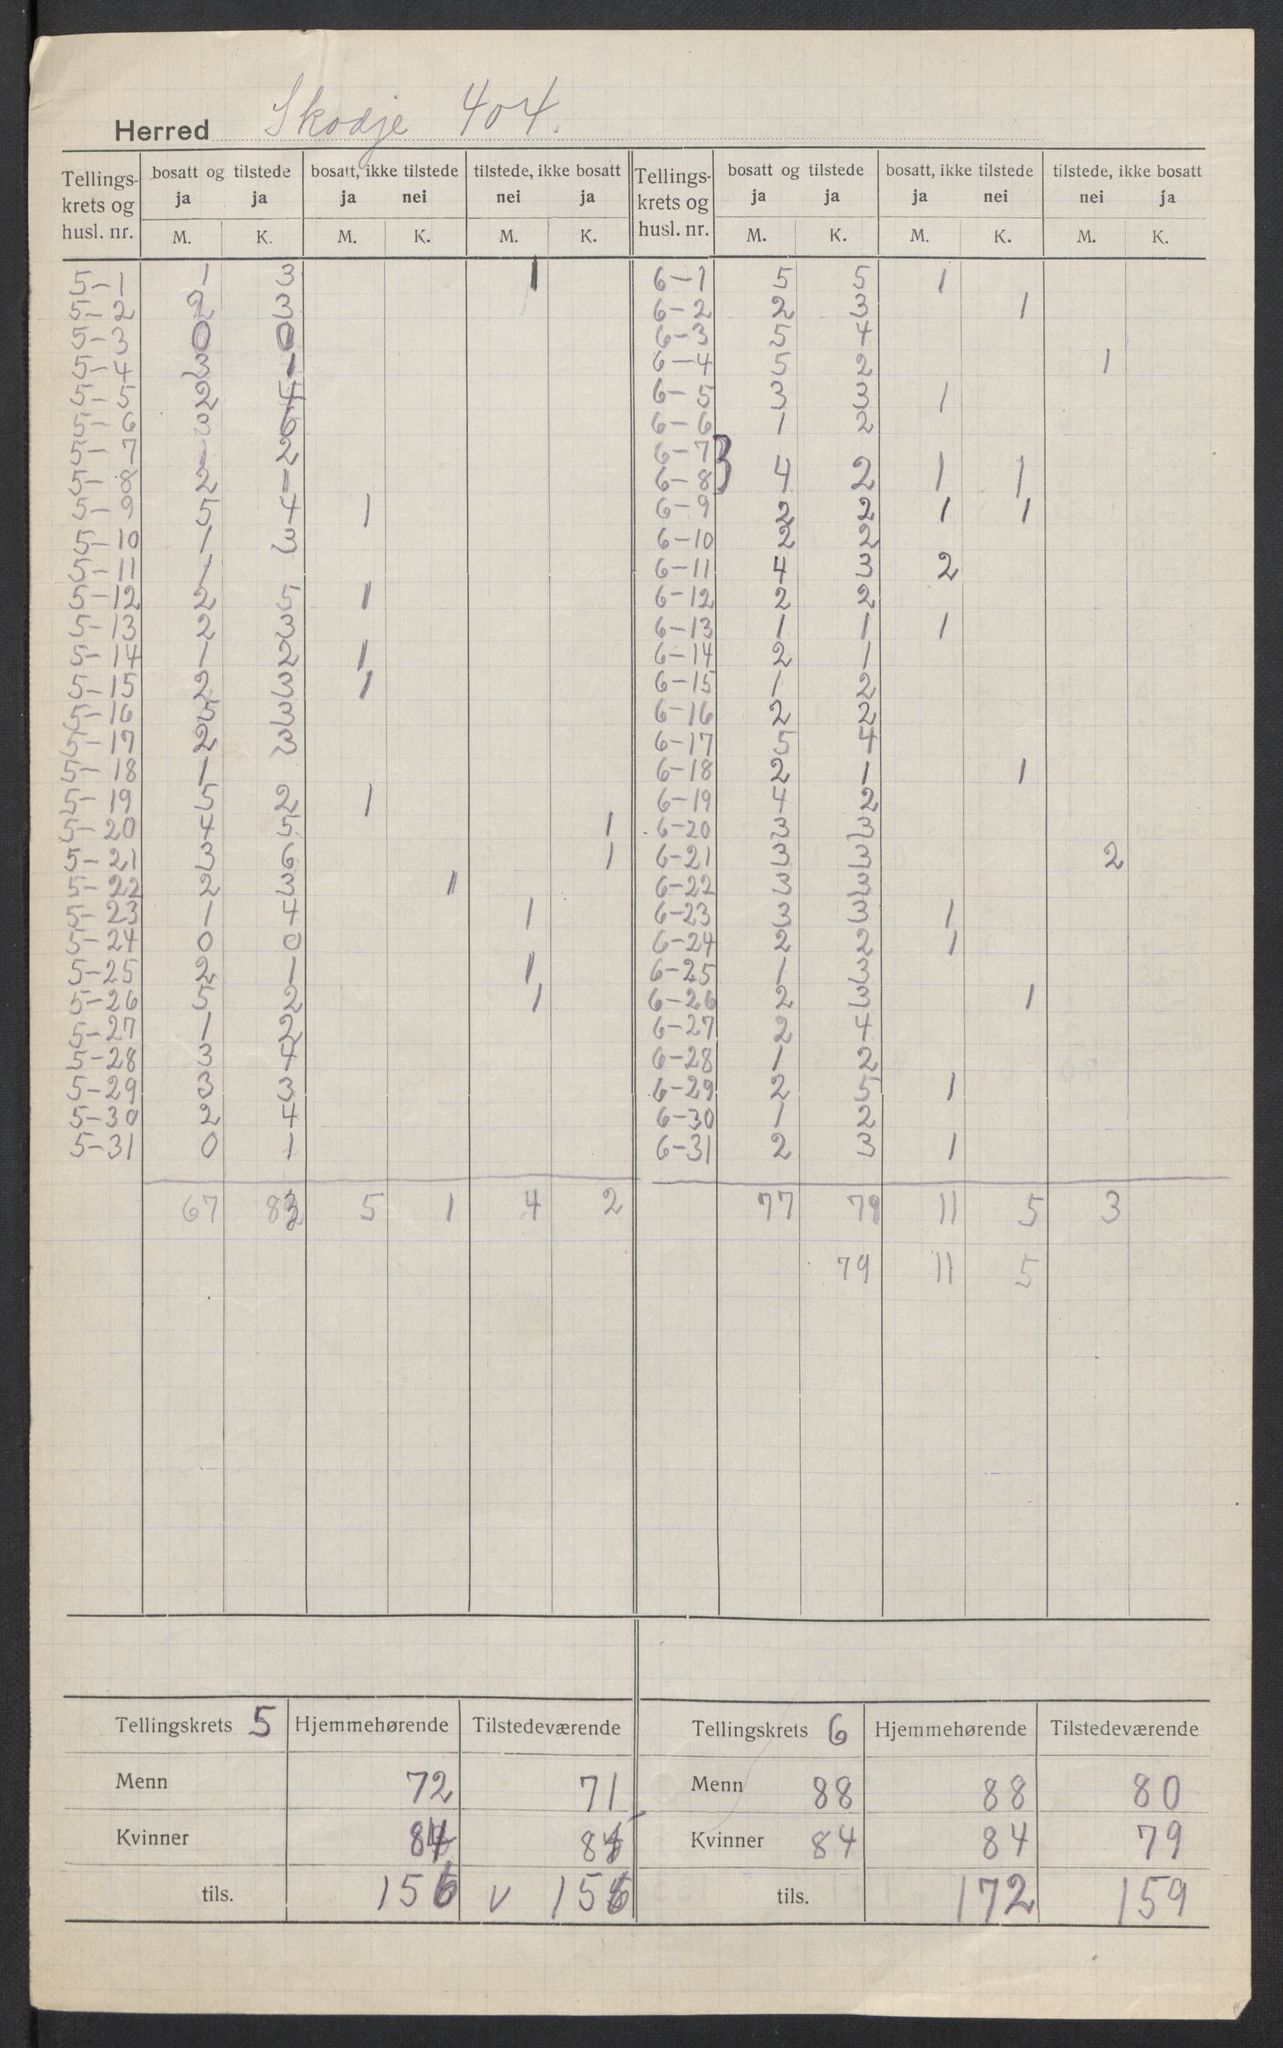 Herred Skodje 404.
Tellings- bosatt og tilstede bosatt, ikke tilstede tilstede, ikke bosatt Tellings- bosatt og tilstede bosatt, ikke tilstede tilstede, ikke bosatt
krets og ja ja ja nei nei ja krets og ja ja ja nei nei ja
husl. nr. M. K. M. K. M. K. husl. nr. M. K. M. K. M. K.
5-1 1 3 1 6-1 5 5 1
5-2 2 3 6-2 2 3 1
5-3 0 0 6-3 5 4
5-4 3 1 6-4 5 2 1
5-5 2 4 6-5 3 3 1
5-6 3 6 6-6 1 2
5-7 1 2 6-7
5-8 2 1 6-8 } 4 2 1 1
5-9 5 4 1 6-9 2 2 1 1
5-10 1 3 6-10 2 2
5-11 1 6-11 4 3 2
5-12 2 5 1 6-12 2 2
5-13 2 3 6-13 1 1 1
5-14 1 2 1 6-14 2 1
5-15 2 3 1 6-15 1 2
5-16 5 3 6-16 2 2
5-17 2 3 6-17 5 4
5-18 1 6-18 2 1 1
5-19 5 2 1 6-19 4 2
5-20 4 5 1 6-20 3 3
5-21 3 6 1 6-21 3 3 2
5-22 2 3 1 6-22 3 3
5-23 1 4 1 6-23 3 3 1
5-24 0 0 6-24 2 2 1
5-25 2 1 1 6-25 1 3
5-26 5 2 1 6-26 2 3 1
5-27 1 2 6-27 2 4
5-28 3 4 6-28 1 2
5-29 3 3 6-29 2 5 1
5-30 2 4 6-30 1 2
5-31 0 1 6-31 2 3 1
67 83 5 1 4 2 77 79 11 5 3
79 11 5
Tellingskrets 5 Hjemmehørende Tilstedeværende Tellingskrets 6 Hjemmehørende Tilstedeværende
Menn 72 71 Menn 88 88 80
Kvinner 84 85 Kvinner 84 84 79
tils. 156 v 156 tils. 172 159